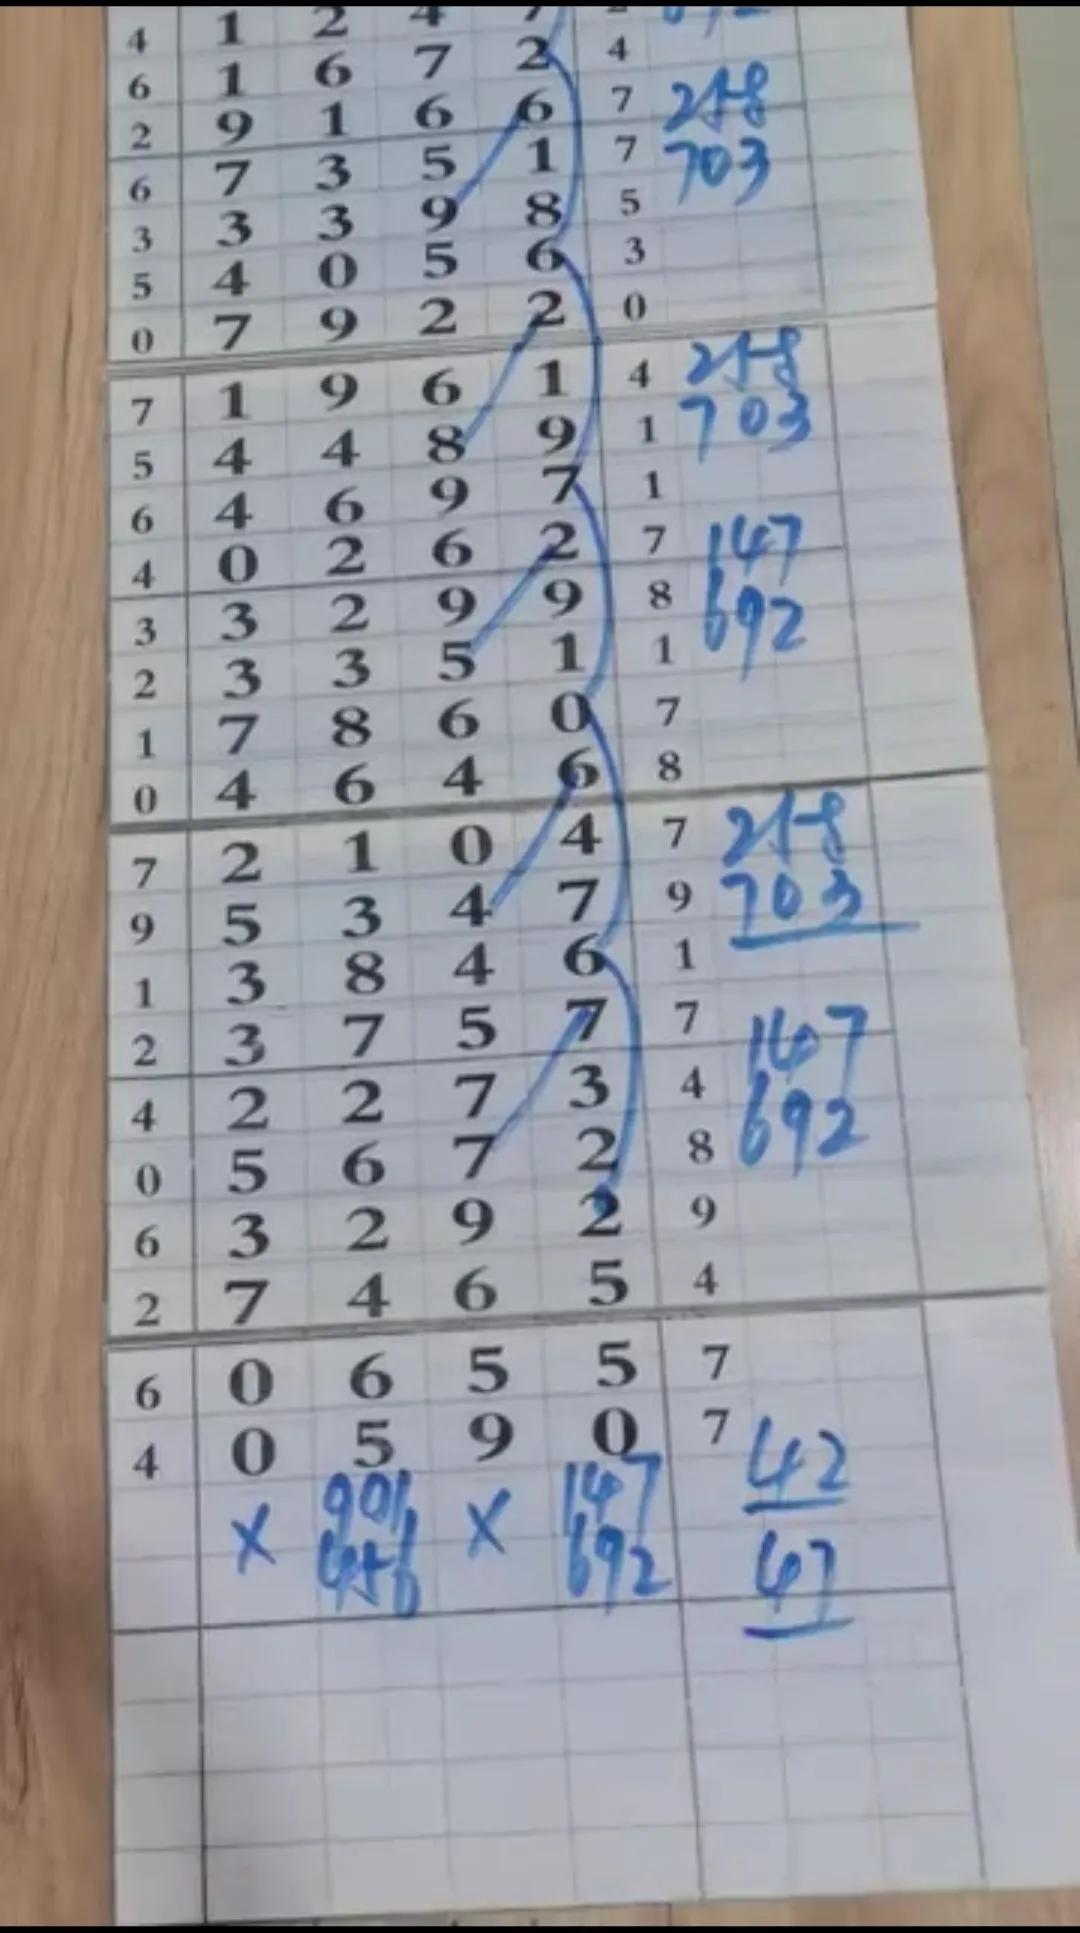 4 1 2 4 7 2
6 1 6 7 2 4
2 9 1 6 6 7 258
6 7 3 5 1 7 703
3 3 3 9 8 5
5 4 0 5 6 3
0 7 9 2 2 0
7 1 9 6 1 4 258
5 4 4 8 9 1 703
6 4 6 9 7 1
4 0 2 6 2 7 147
3 3 2 9 9 8 692
2 3 3 5 1 1
1 7 8 6 0 7
0 4 6 4 6 8
7 2 1 0 4 7 258
9 5 3 4 7 9 703
1 3 8 4 6 1
2 3 7 5 7 7 147
4 2 2 7 3 4 692
0 5 6 7 2 8
6 3 2 9 2 9
2 7 4 6 5 4
6 0 6 5 5 7
4 0 5 9 0 7 42
× 901 × 147
456 692 47